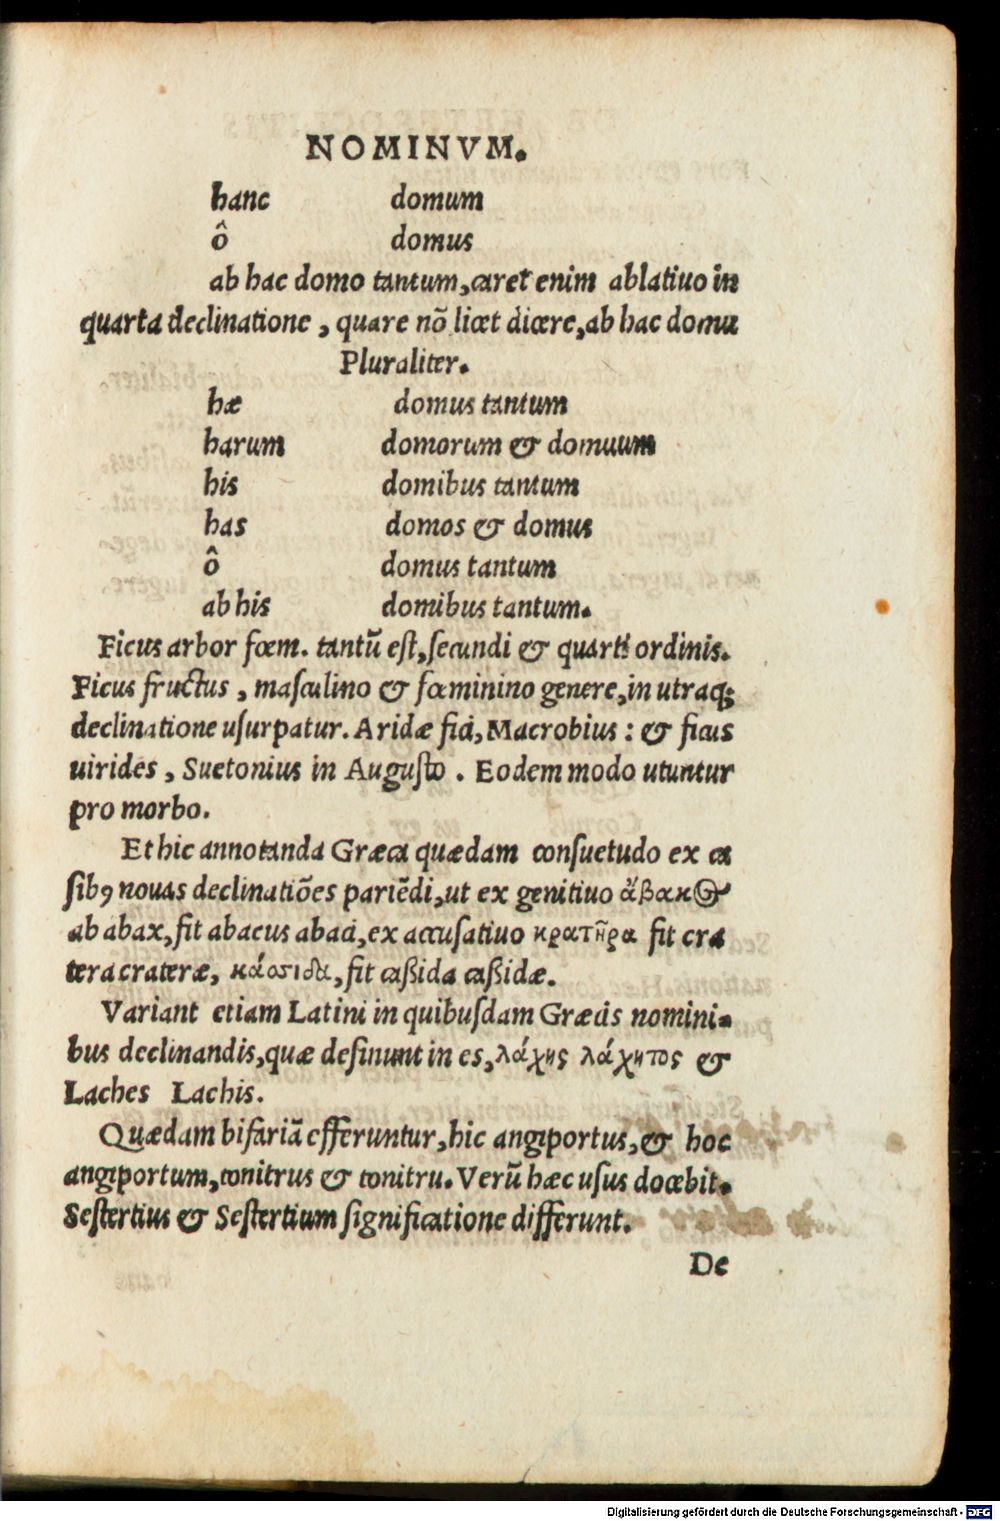 NOMINVM.
hanc domum
ô domus
ab hac domo tantum, caret enim ablatiuo in
quarta declinatione, quare nõ licet dicere, ab hac domu
Pluraliter.
hæ domus tantum
harum domorum & domuum
his domibus tantum
has domos & domus
ô domus tantum
ab his domibus tantum.
Ficus arbor fœm. tantũ est, secundi & quarti ordinis.
Ficus fructus, masculino & fœminino genere, in utraq;
declinatione usurpatur. Aridæ fici, Macrobius: & ficus
uirides, Suetonius in Augusto. Eodem modo utuntur
pro morbo.
Et hic annotanda Græca quædam consuetudo ex ca
sibꝰ nouas declinatiões pariẽdi, ut ex genitiuo ἄβακος
ab abax, fit abacus abaci, ex accusatiuo κρατῆρα fit cra
tera crateræ, κάσσιδα, fit caßida caßidæ.
Variant etiam Latini in quibusdam Græcis nomini-
bus declinandis, quæ desinunt in es, λάχης λάχητος &
Laches Lachis.
Quædam bifariã efferuntur, hic angiportus, & hoc
angiportum, tonitrus & tonitru. Verũ hæc usus docebit.
Sestertius & Sestertium significatione differunt.
De
Digitalisierung gefördert durch die Deutsche Forschungsgemeinschaft - DFG